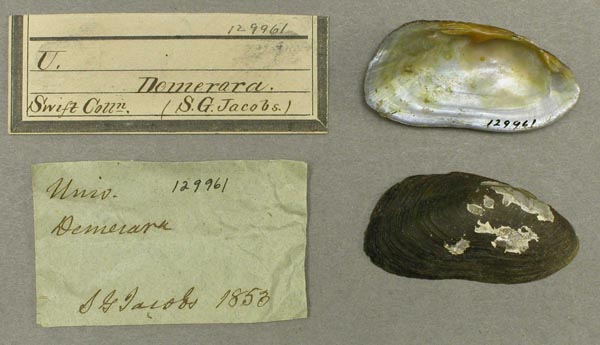 129961
U.
Demerara.
Swift Colln.
(S.G. Jacobs.)
129961
Unio.
129961
Demerara
S G Jacobs 1853